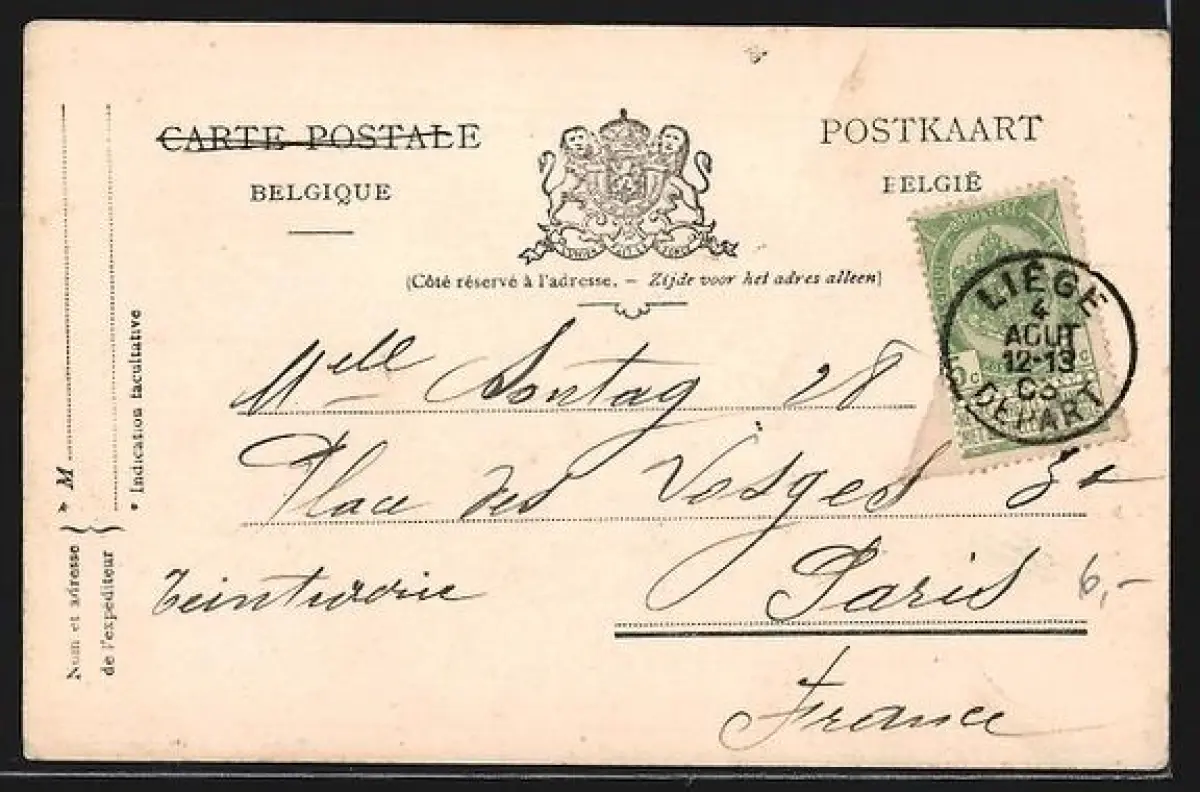 CARTE POSTALE
BELGIQUE
POSTKAART
BELGIË
(Côté réservé à l'adresse. – Zijde voor het adres alleen)
LIÉGE
4
AOUT
12-13
DEPART
5 c
Melle Sontag 28
Place des Vosges
Paris
6,-
Teinturerie
France
* M
Nom et adresse
de l'expéditeur
* Indication facultative